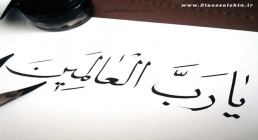 www.Ziaossalehin.ir
یٰا رَبَّ الْعٰالَمِینَ